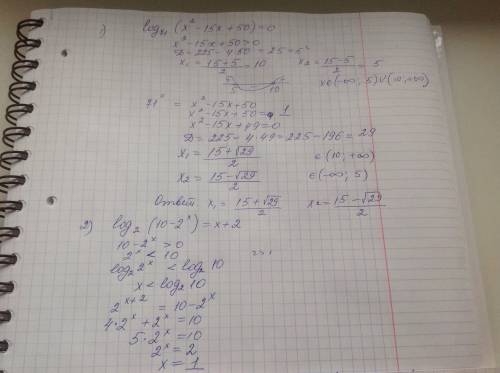 1) log₇₁ (x² - 15x + 50) = 0
x² - 15x + 50 > 0
D = 225 - 4·50 = 25 = 5²
x₁ = (15+5)/2 = 10 x₂ = (15-5)/2 = 5
5 10 x ∈ (-∞; 5) ∪ (10; +∞)
71⁰ = x² - 15x + 50
x² - 15x + 50 = 1
x² - 15x + 49 = 0
D = 225 - 4·49 = 225 - 196 = 29
x₁ = (15+√29)/2 ∈ (10; +∞)
x₂ = (15-√29)/2 ∈ (-∞; 5)
Ответ x₁ = (15+√29)/2 x₂ = (15-√29)/2
2) log₂ (10 - 2ˣ) = x + 2
10 - 2ˣ > 0
2ˣ < 10
log₂ 2ˣ < log₂ 10
x < log₂ 10
2ˣ⁺² = 10 - 2ˣ
4·2ˣ + 2ˣ = 10
5·2ˣ = 10
2ˣ = 2
x = 1